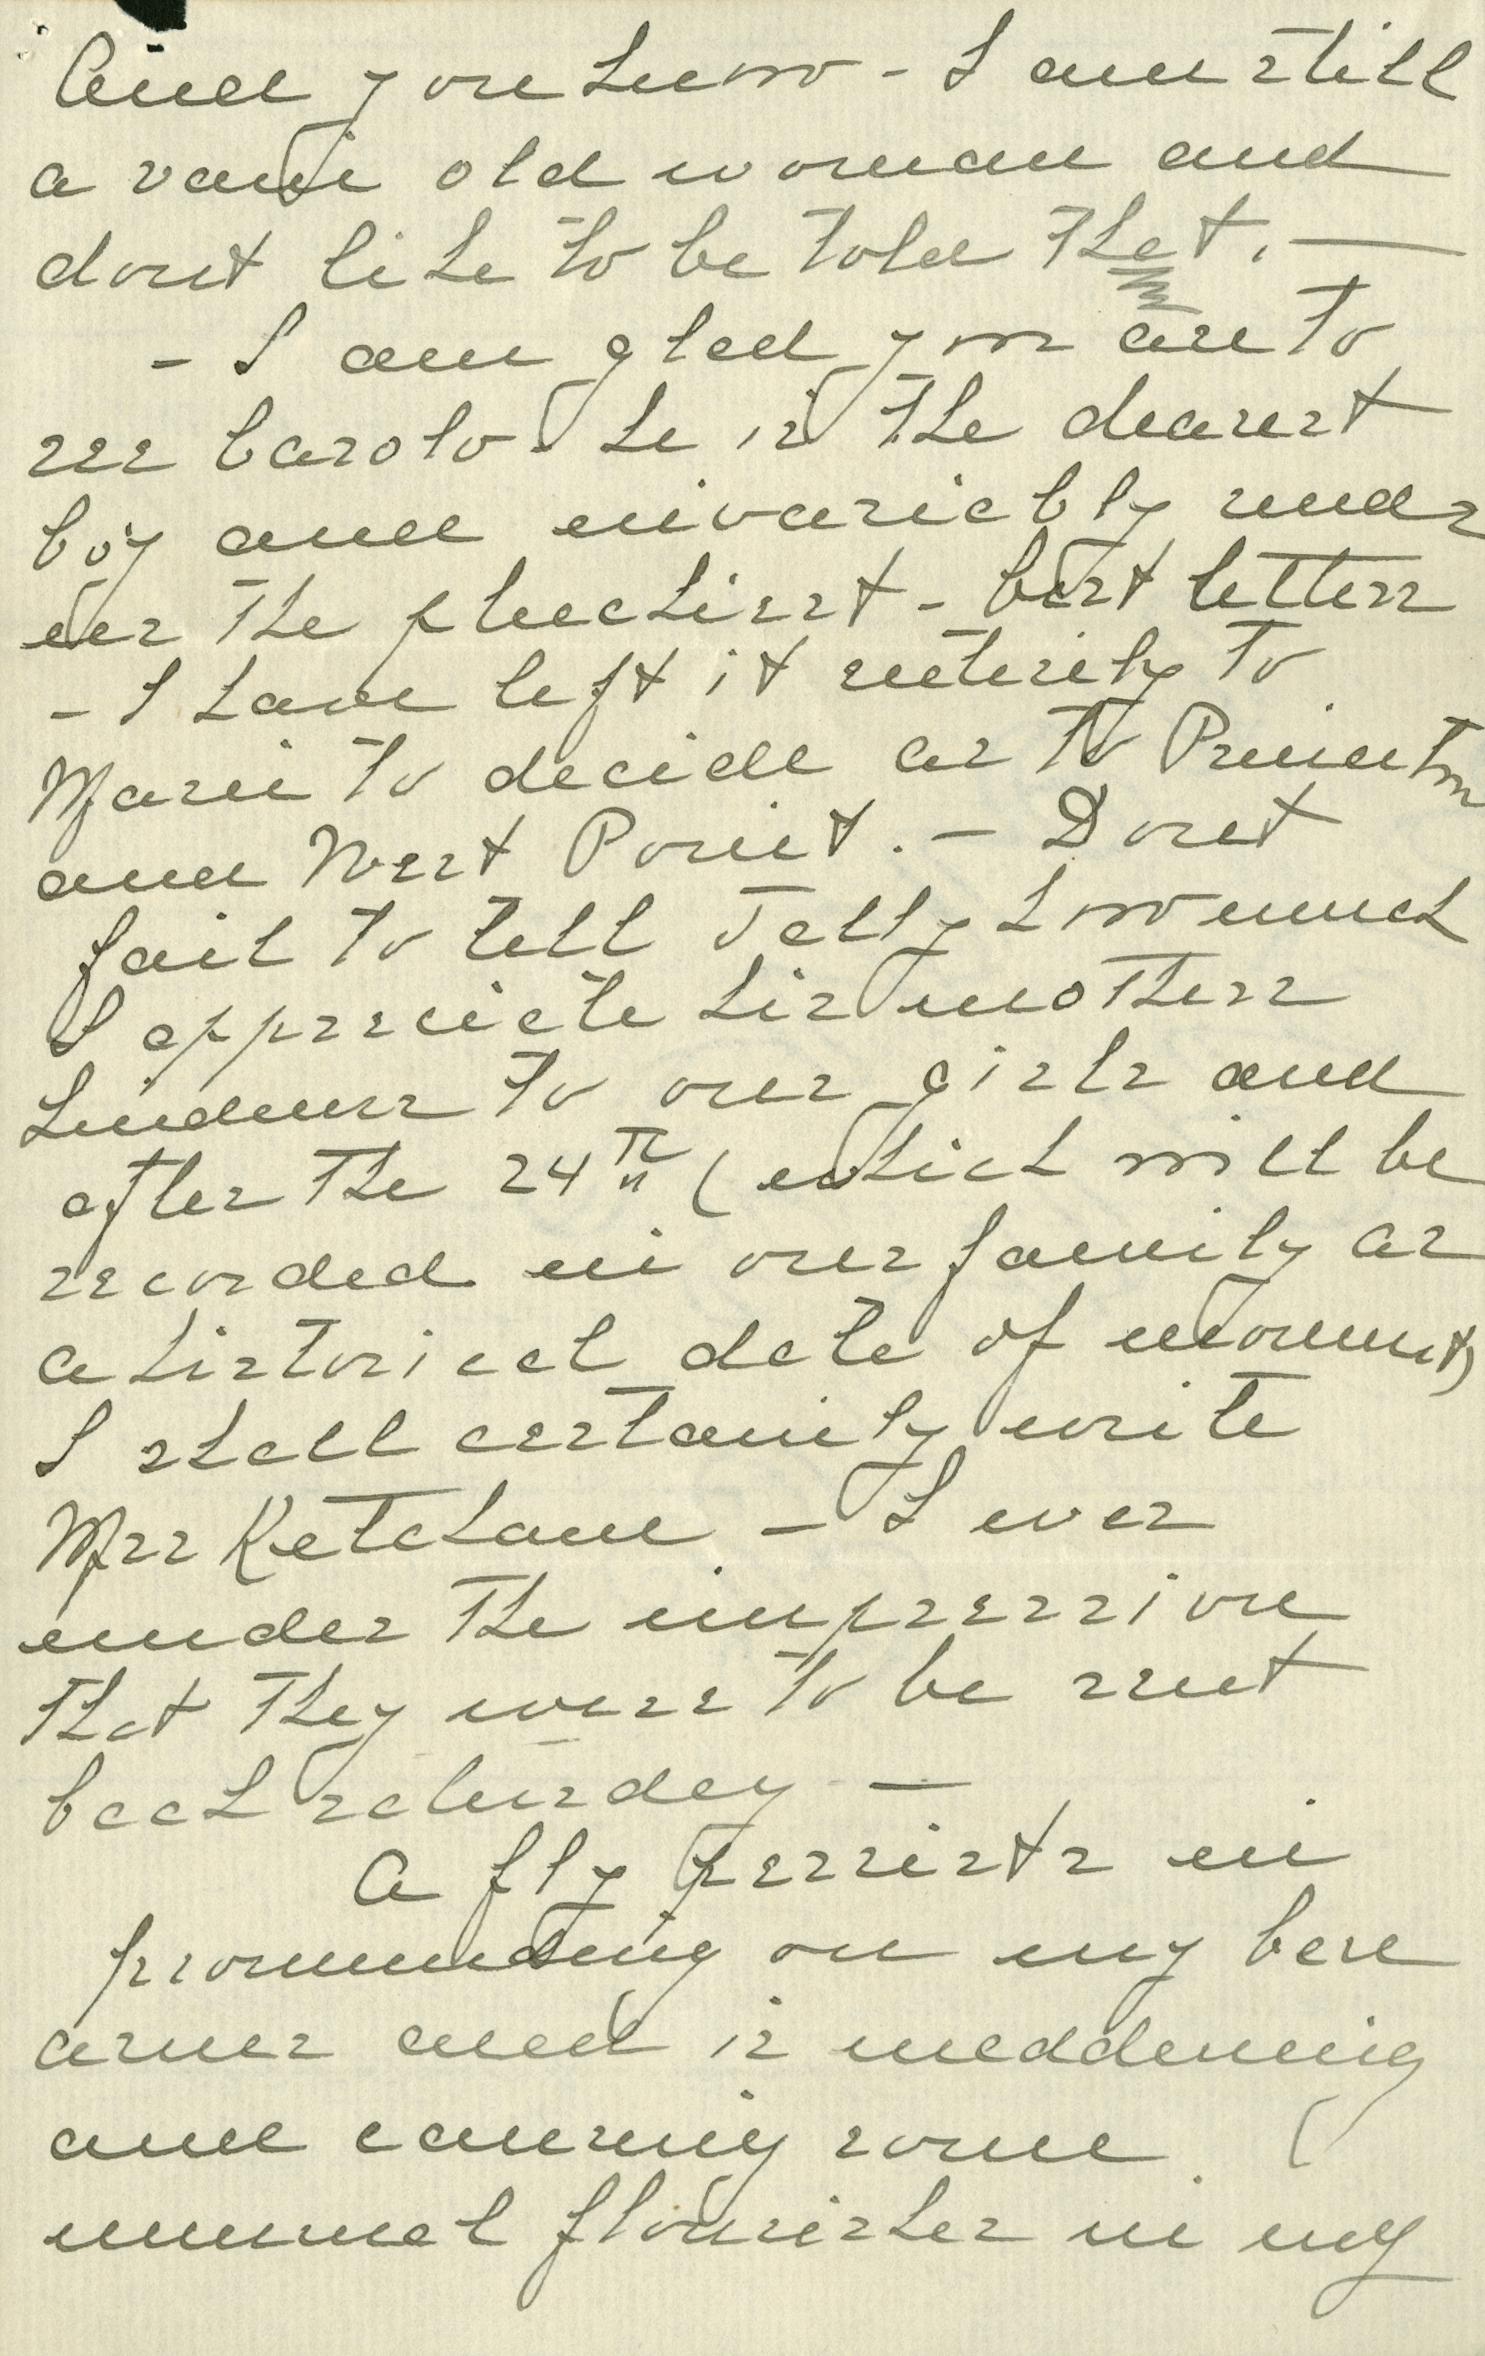 And you know - I am still
a vain old woman and
dont like to be told that. —
- I am glad you are to
see Caroto - he is the dearest
boy and invariably sends
us the pluckiest - best letters
- I have left it entirely to
Marie to decide as to Princeton
and West Point. - Dont
fail to tell Tally how much
I appreciate his mothers
kindness to our girls and
after the 24th (which will be
recorded in our family as
a historical date of moment)
I shall certainly write
Mrs Ketcham - I was
under the impression
that they were to be sent
back saturday —
A fly persists in
promenading on my bare
arms and is maddening
and causing some
unusual flourishes in my